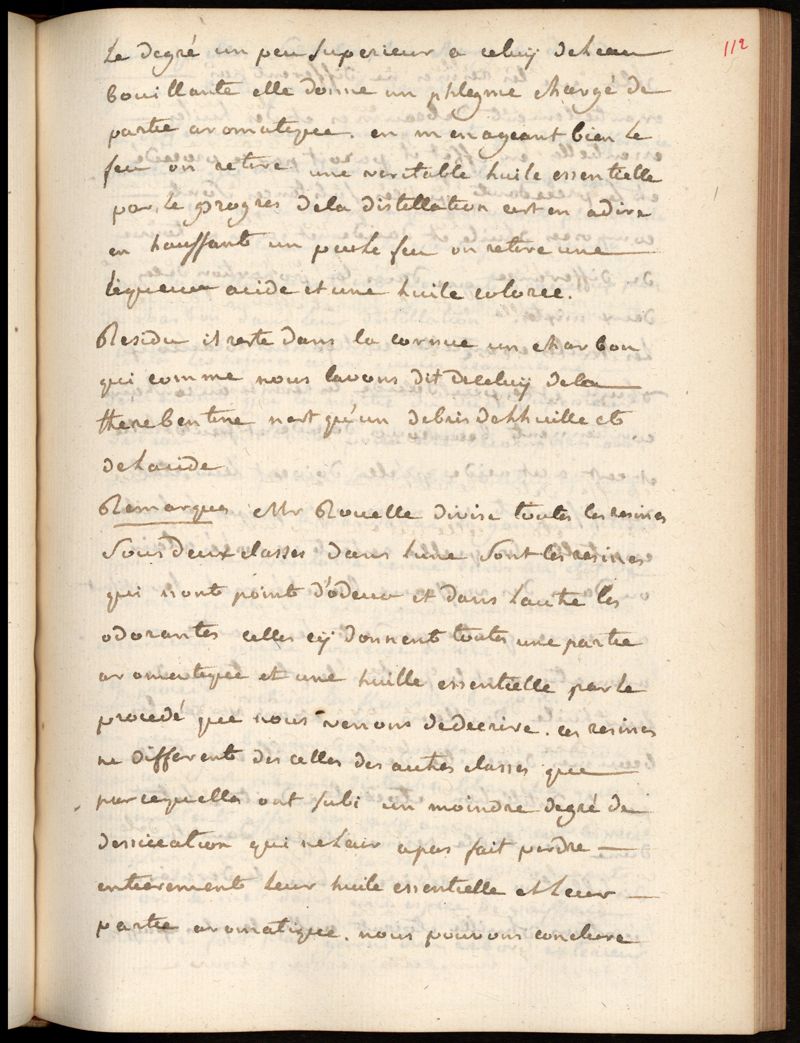 112
Le degré un peu superieur a celuy de leau
bouillante elle donne un phlegme chargé de
partie aromatique. en menageant bien le
feu on retire une veritable huile essentielle
par le progres dela distillation cest en adire
en haussant un peu le feu on retire une
liqueur acide et une huile coloree.
Residu il reste dans la cornue un charbon
qui comme nous lavons dit de celuy dela
therebentine nest qu'un debris de lhuille et
de lacide
Remarques Mr Rouelle divise toutes les resines
sous deux classes dans lune sont les resines
qui nont point d'odeur et dans lautre les
odorantes celles cy donnent toutes une partie
aromatique et une huille essentielle par le
procedé que nous venons dedecrire. ces resines
ne different des celles des autres classes que
parcequelles ont subi un moindre degré de
dessiccation qui ne leur apas fait perdre
entierement leur huile essentielle et leur
partie aromatique. nous pouvons conclure